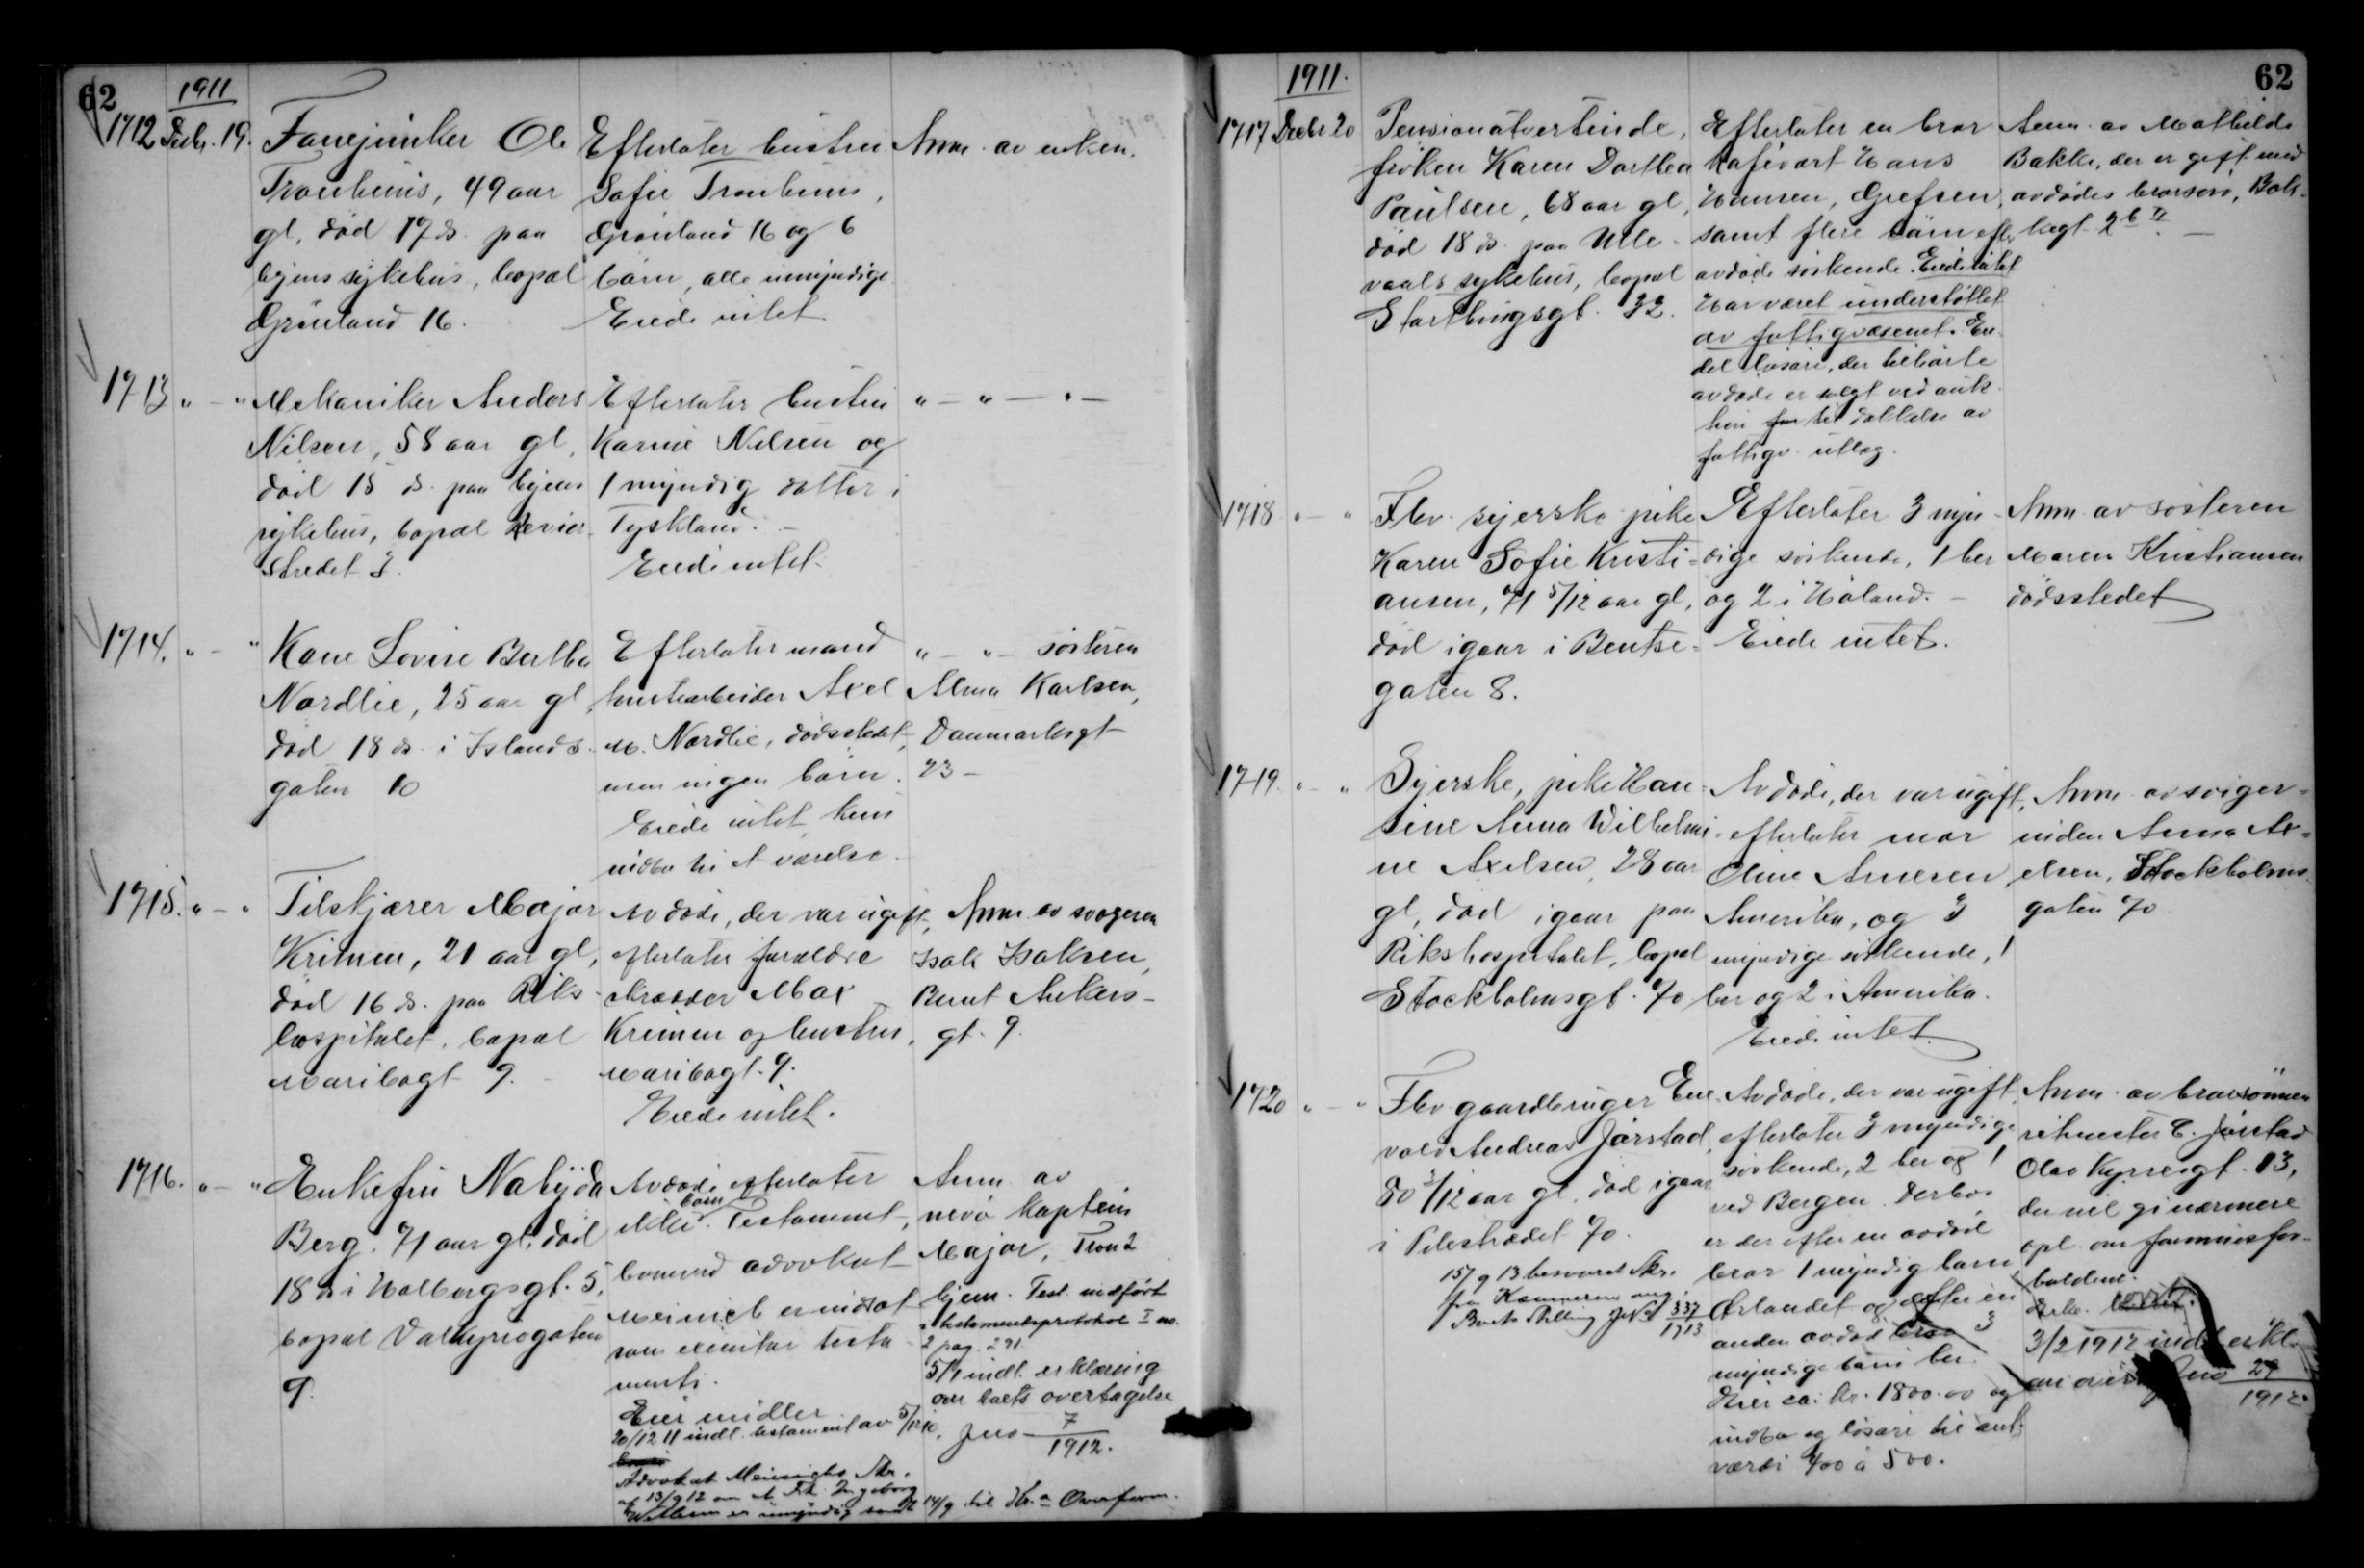 62
1911
1712 Decbr. 19.
Fanejunker Ole
Tronhuus, 49 aar
gl, död 17 ds. paa
byens sykehus, bopæl
Grönland 16.
Efterlater hustru
Sofie Tronhuus,
Grönland 16 og 6
børn, alle umyndige
Eiede intet.
Anm. av enken.
1713 " - "
Mekaniker Anders
Nilsen, 58 aar gl,
död 15 ds. paa byens
sykehus, bopæl Revier-
stredet 3.
Efterlater hustru
Karine Nilsen og
1 myndig datter i
Tyskland. -
Eiede intet.
" - " - " -
1714. " - "
Kone Lovise Bertha
Nordlie, 25 aar gl,
död 18 ds. i Islands-
gaten 10
Efterlater mand
Axel
M. Nordlie, dödsstedet,
men ingen börn.
Eiede intet, kun
indbo til et værelse.
" - " - søsteren
Alma Karlsen,
Danmarksgt
23 -
1715. " - "
Tilskjærer Major
Krimen, 21 aar gl,
död 16 ds. paa Riks-
hospitalet, bopæl
Maribogt 9. -
Avdöde, der var ugift,
efterlater forældre
skrædder Max
Krimen og hustru,
Maribogt. 9.
Eiede intet.
Anm. av svogeren
Isak Isaksen,
Bernt Ankers-
gt. 9.
1716. " - "
Enkefru Nabijda
Berg, 71 aar gl, död
18 ds i Holbergsgt. 5,
bopæl Valkyriegaten
9.
Avdöde efterlater
ikke börn. Testament,
hvorved advokat
Meinich er indsat
som executor testa-
menti.
Eier midler
20/12 11 indl. testament av 5/12 10.
Advokat Meinichs Skr.
af 13/9 12 om at Frk. Ingeborg
er umyndig sendt 14/9 til Kr.a Overform.
Anm. av
nevö kaptein
Major, Tron
hjem. Test. indført
i testamentsprotokol I no.
2 pag. 291.
5/1 indl. erklæring
om boets overtagelse
Jno 7/1912.
62
1911.
1717 Decbr 20
Pensionatvertinde,
fröken Karen Dorthea
Paulsen, 68 aar gl,
död 18 ds. paa Ulle-
vaals sykehus, bopæl
Stortingsgt. 32.
Efterlater en bror
kafévært Hans
Hansen, Grefsen,
samt flere børn efter
avdøde søskende. Eiede intet
Har været understøttet
av fattigvæsenet. En
del løsøre, der tilhørte
avdøde er solgt ved auk-
tion for til dækkelse av
fattigv. utlæg.
Anm. av Mathilde
Bakke, der er gift med
avdødes brorsøn, Bak-
kegt 26 II. -
1718 " - "
Flhv. syerske pike
Karen Sofie Kristi-
ansen, 71 5/12 aar gl,
död igaar i Bentse-
gaten 8.
Efterlater 3 myn-
dige søskende, 1 her
og 2 i Höland. -
Eiede intet.
Anm. av søsteren
Maren Kristiansen
dødsstedet
1719. " - "
Syerske, pike Han-
sine Anna Wilhelmi-
ne Axelsen, 28 aar
gl, död igaar paa
Rikshospitalet, bopæl
Stockholmsgt. 70
Avdöde, der var ugift,
efterlater mor
Oline Arnesen,
Amerika, og 3
myndige søskende, 1
her og 2 i Amerika.
Eiede intet.
Anm. av sviger-
inden Anna Ax-
elsen, Stockholms-
gaten 70
1720 " - "
Flhv gaardbruger Ene-
vold Andreas Jørstad,
80 3/12 aar gl, død igaar
i Pilestrædet 70.
15/9 13 besvaret Skr.
fra Kæmneren ang.
Boets Stilling JNo 337/1913
Avdöde, der var ugift,
efterlater 3 myndige
søskende, 2 her og 1
ved Bergen. Derhos
er der efter en avdød
bror 1 myndig barn
Ørlandet og efter en
anden avdød bror 3
myndige børn her.
Eier ca. kr. 1800.00 og
indbo og løsøre til ant.
værdi 400 à 500.
Anm. av brorsønnen
ritmester C. Jørstad
Olav Kyrresgt. 13,
der vil gi nærmere
opl. om formuesfor-
holdene.
3/2 1912 indl. erkl.
om overt. Jno 27/1912